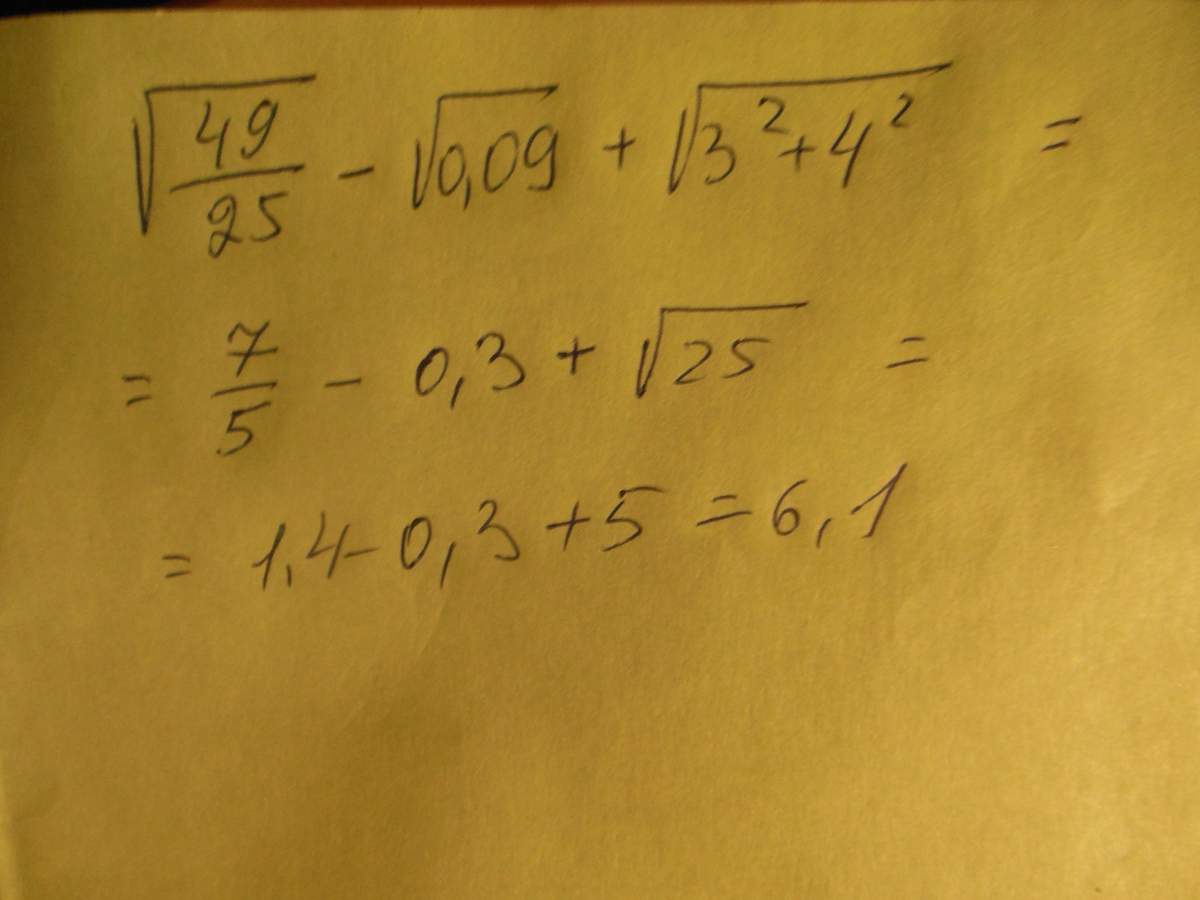 √(49/25) - √0,09 + √(3² + 4²) =
= 7/5 - 0,3 + √25 =
= 1,4 - 0,3 + 5 = 6,1